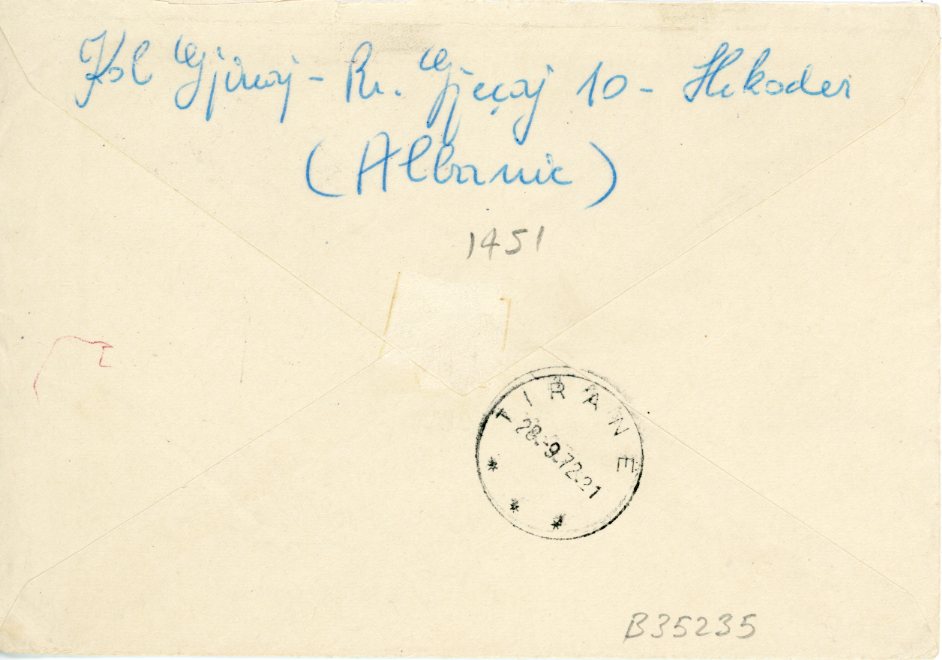 Kol Gjinaj - Rr. Gjeçaj 10 - Shkoder
(Albanie)
1451
TIRANË
28.-9.72.21
B35235